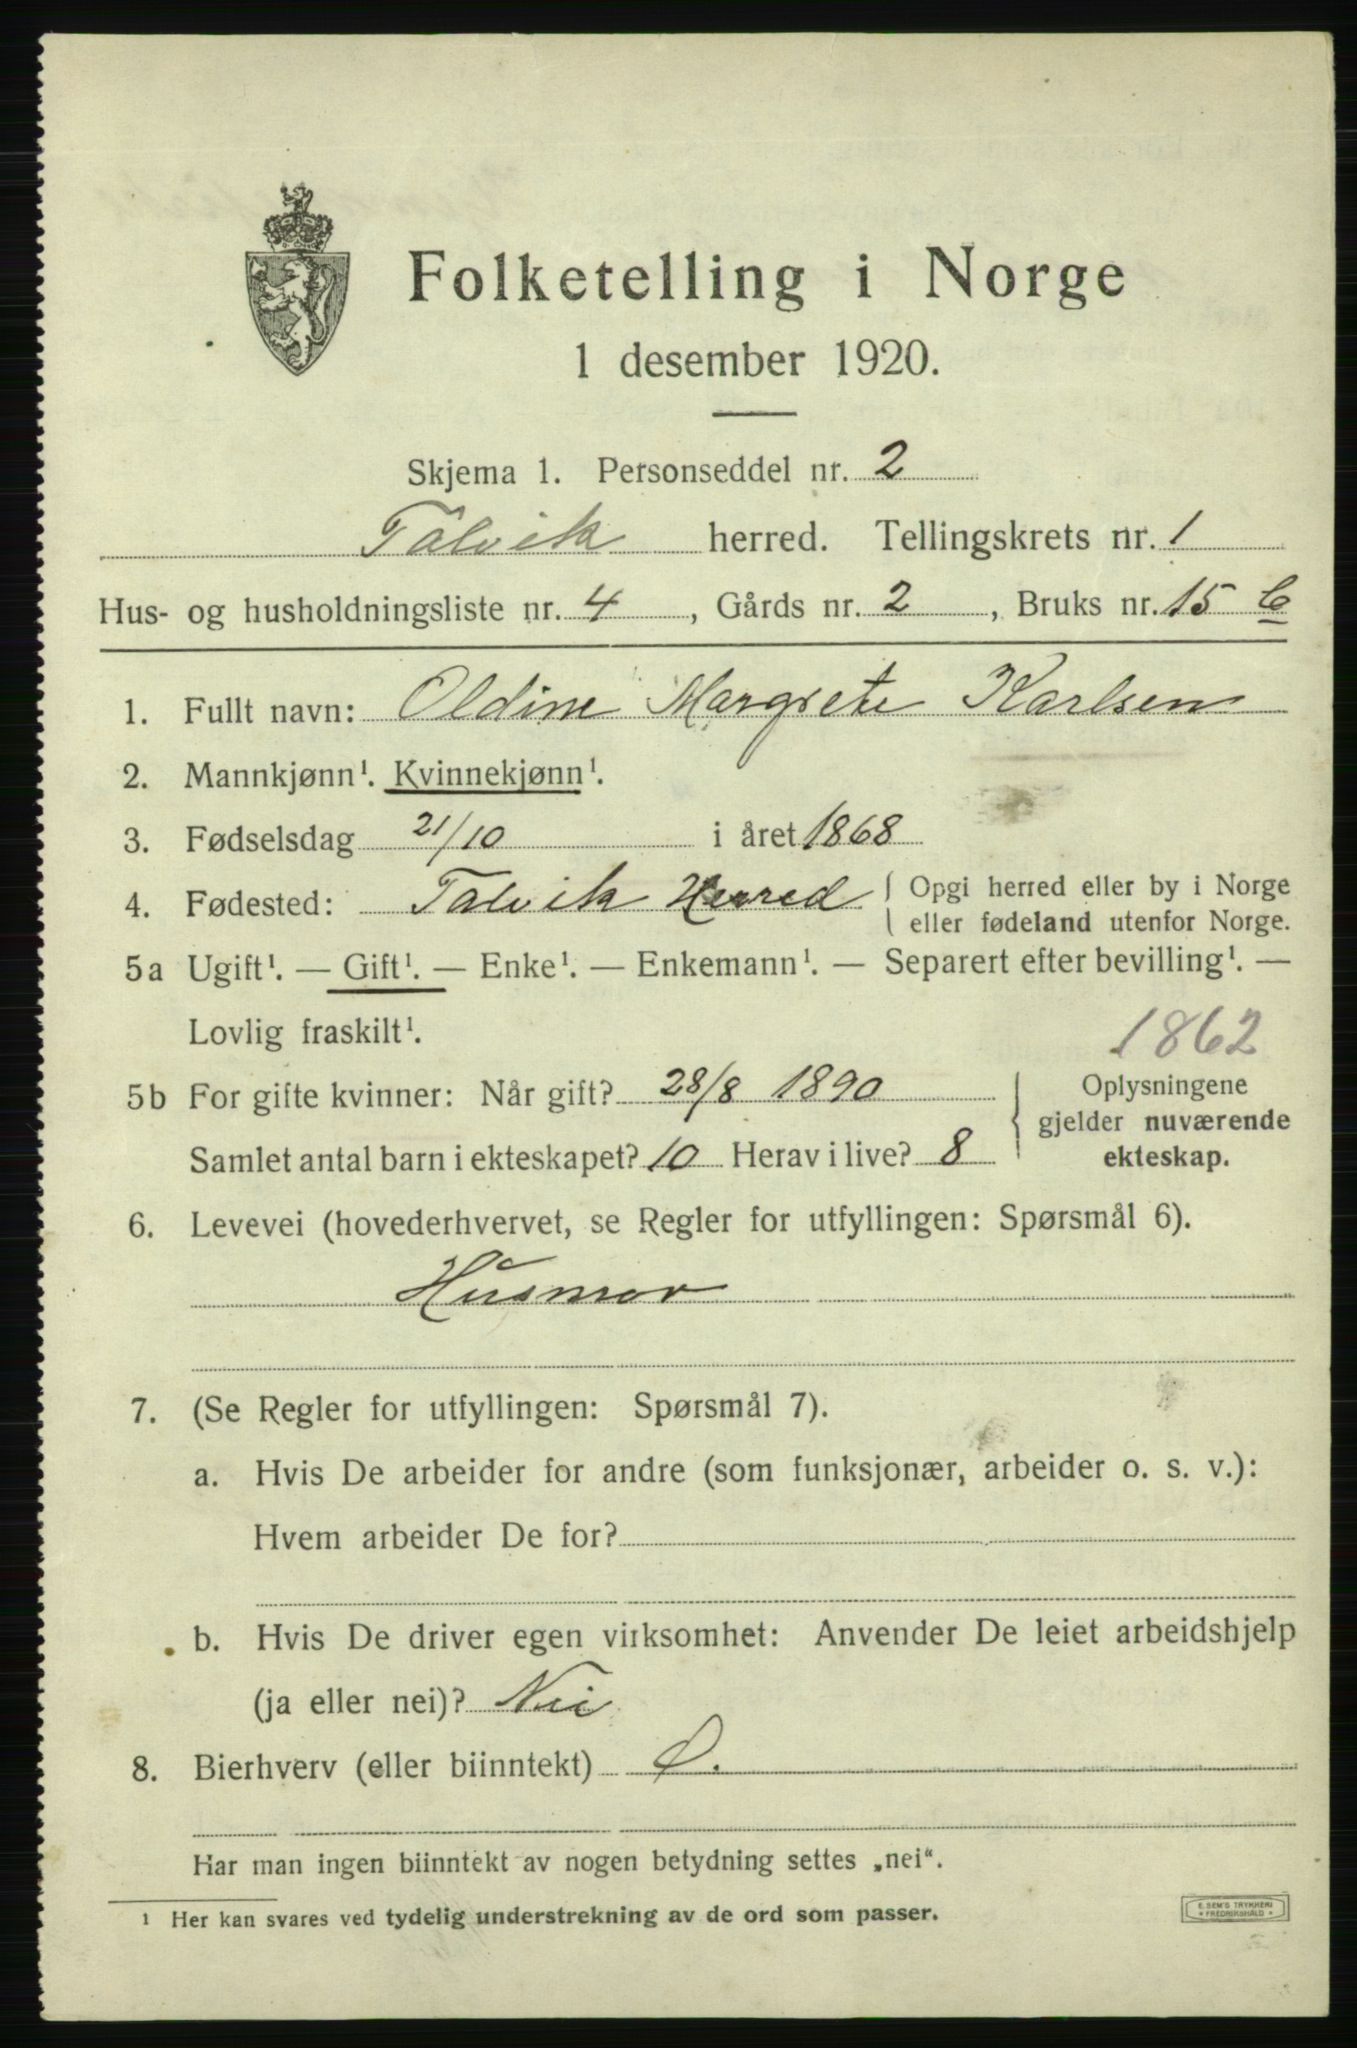 Folketelling i Norge
1 desember 1920.
Skjema 1. Personseddel nr. 2
Talvik herred. Tellingskrets nr. 1
Hus- og husholdningsliste nr. 4, Gårds nr. 2, Bruks nr. 15 b
1. Fullt navn: Oldine Margrete Karlsen
2. Mannkjønn¹. Kvinnekjønn¹.
3. Fødselsdag 21/10 i året 1868
4. Fødested: Talvik Herred { Opgi herred eller by i Norge
eller fødeland utenfor Norge.
5a Ugift¹. — Gift¹. — Enke¹. — Enkemann¹. — Separert efter bevilling¹. —
Lovlig fraskilt¹.
1862
5b For gifte kvinner: Når gift? 28/8 1890
Samlet antal barn i ekteskapet? 10 Herav i live? 8
Oplysningene
gjelder nuværende
ekteskap.
6. Levevei (hovederhvervet, se Regler for utfyllingen: Spørsmål 6).
Husmor
7. (Se Regler for utfyllingen: Spørsmål 7).
a. Hvis De arbeider for andre (som funksjonær, arbeider o. s. v.):
Hvem arbeider De for?
b. Hvis De driver egen virksomhet: Anvender De leiet arbeidshjelp
(ja eller nei)? Nei
8. Bierhverv (eller biinntekt) Ø.
Har man ingen biinntekt av nogen betydning settes „nei“.
¹ Her kan svares ved tydelig understrekning av de ord som passer.
E. SEM'S TRYKKERI
* FREDRIKSHALD *